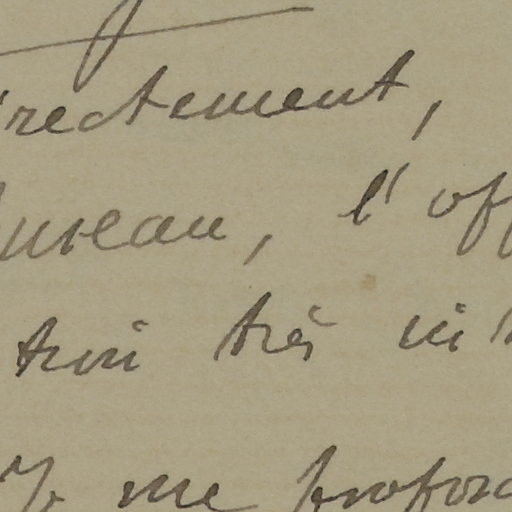 irectement,
bureau, l'off
très
Je me propos